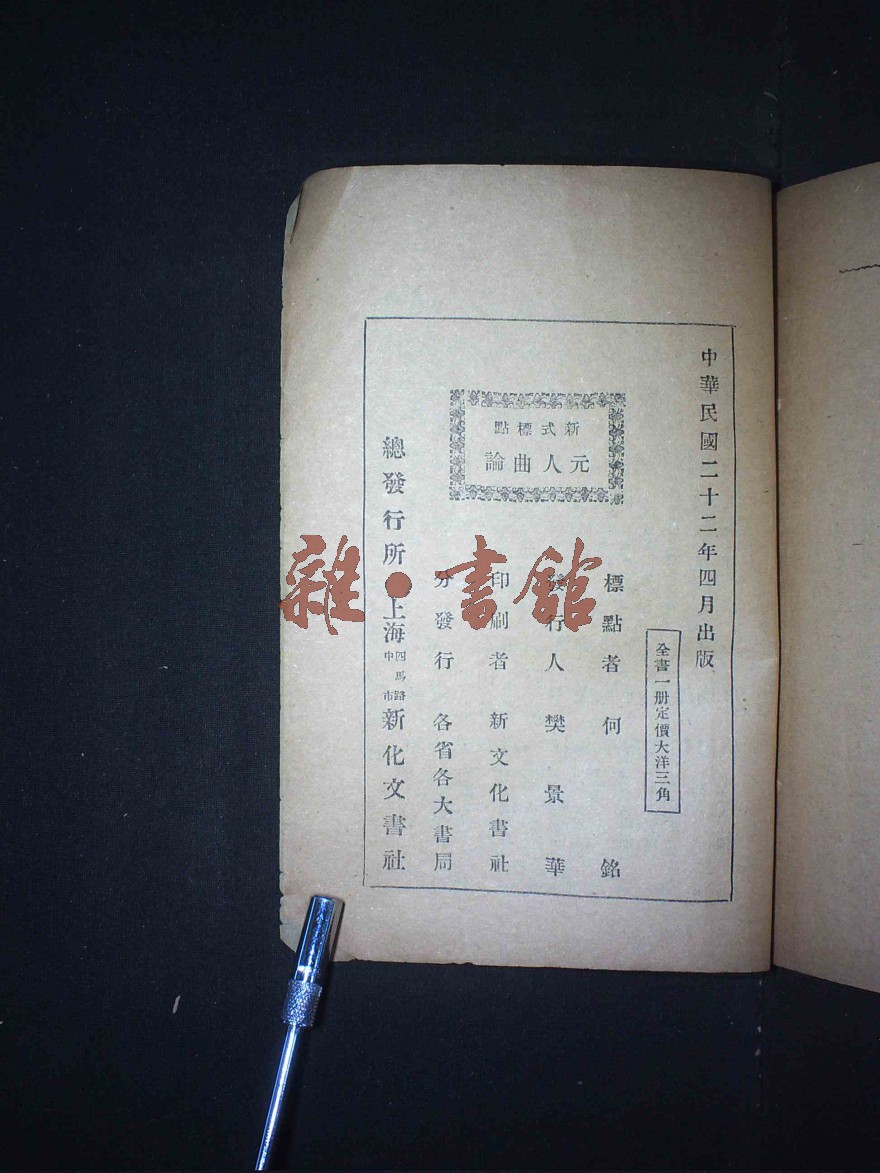 中華民國二十二年四月出版
全書一册定價大洋三角
新式標點
元人曲論
標點者 何銘
發行人 樊景華
印刷者 新文化書社
分發行 各省各大書局
總發行所 上海 四馬路中市 新化文書社
雜·書館